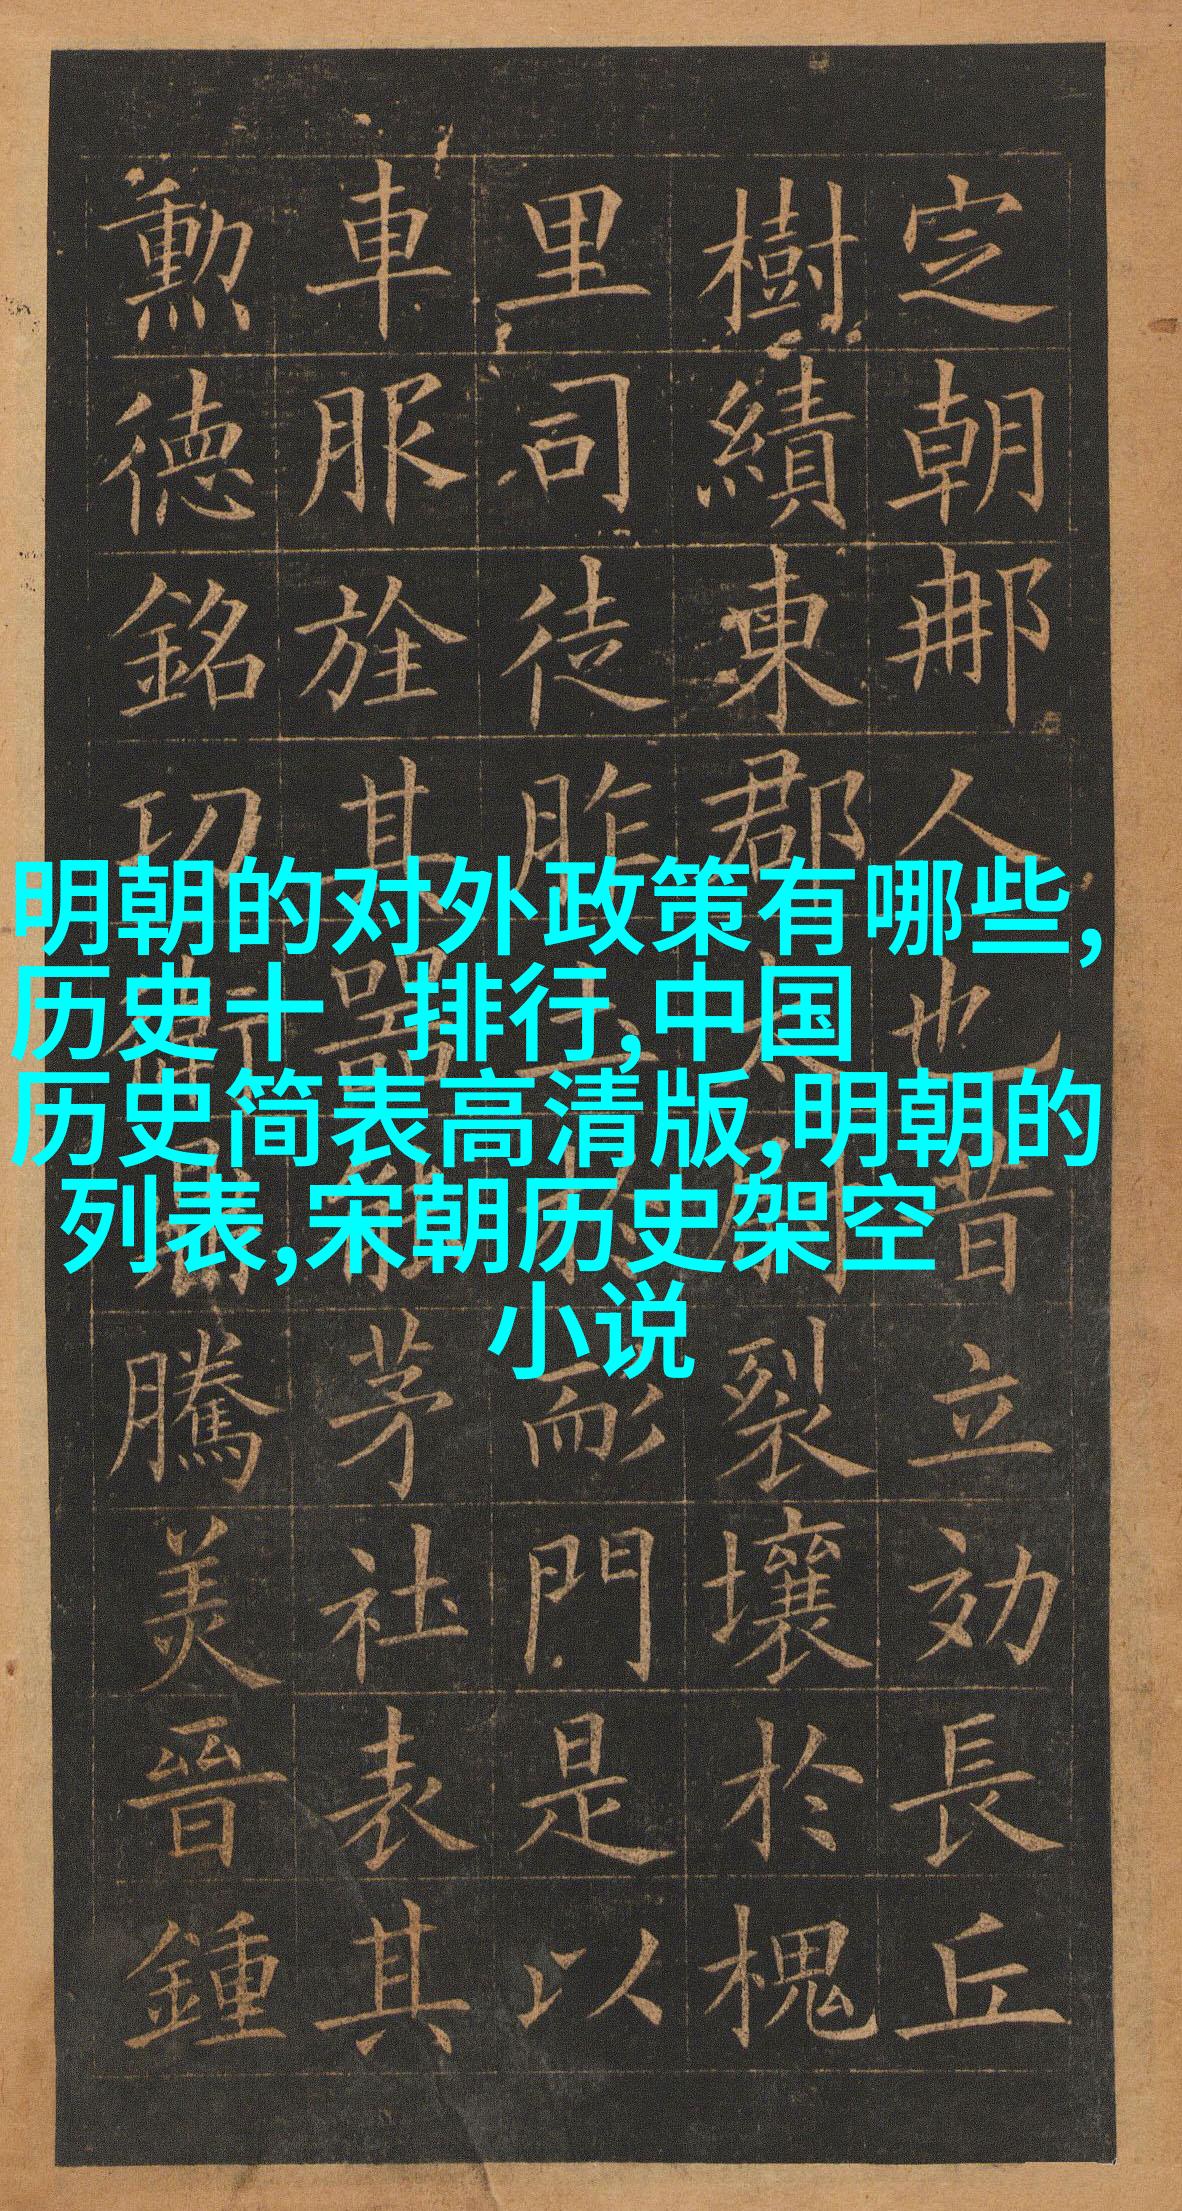 明朝的对外政策有哪些,
历史十 排行,中国
历史简表高清版,明朝的
列表,宋朝历史架空
小说
定朝那人也昔立効長丘
樹績東郡太裂壤於槐
里司徒胙土於耏門是以
車服旌其器能茅社表其
勲德銘功衛鼎騰美晉鍾